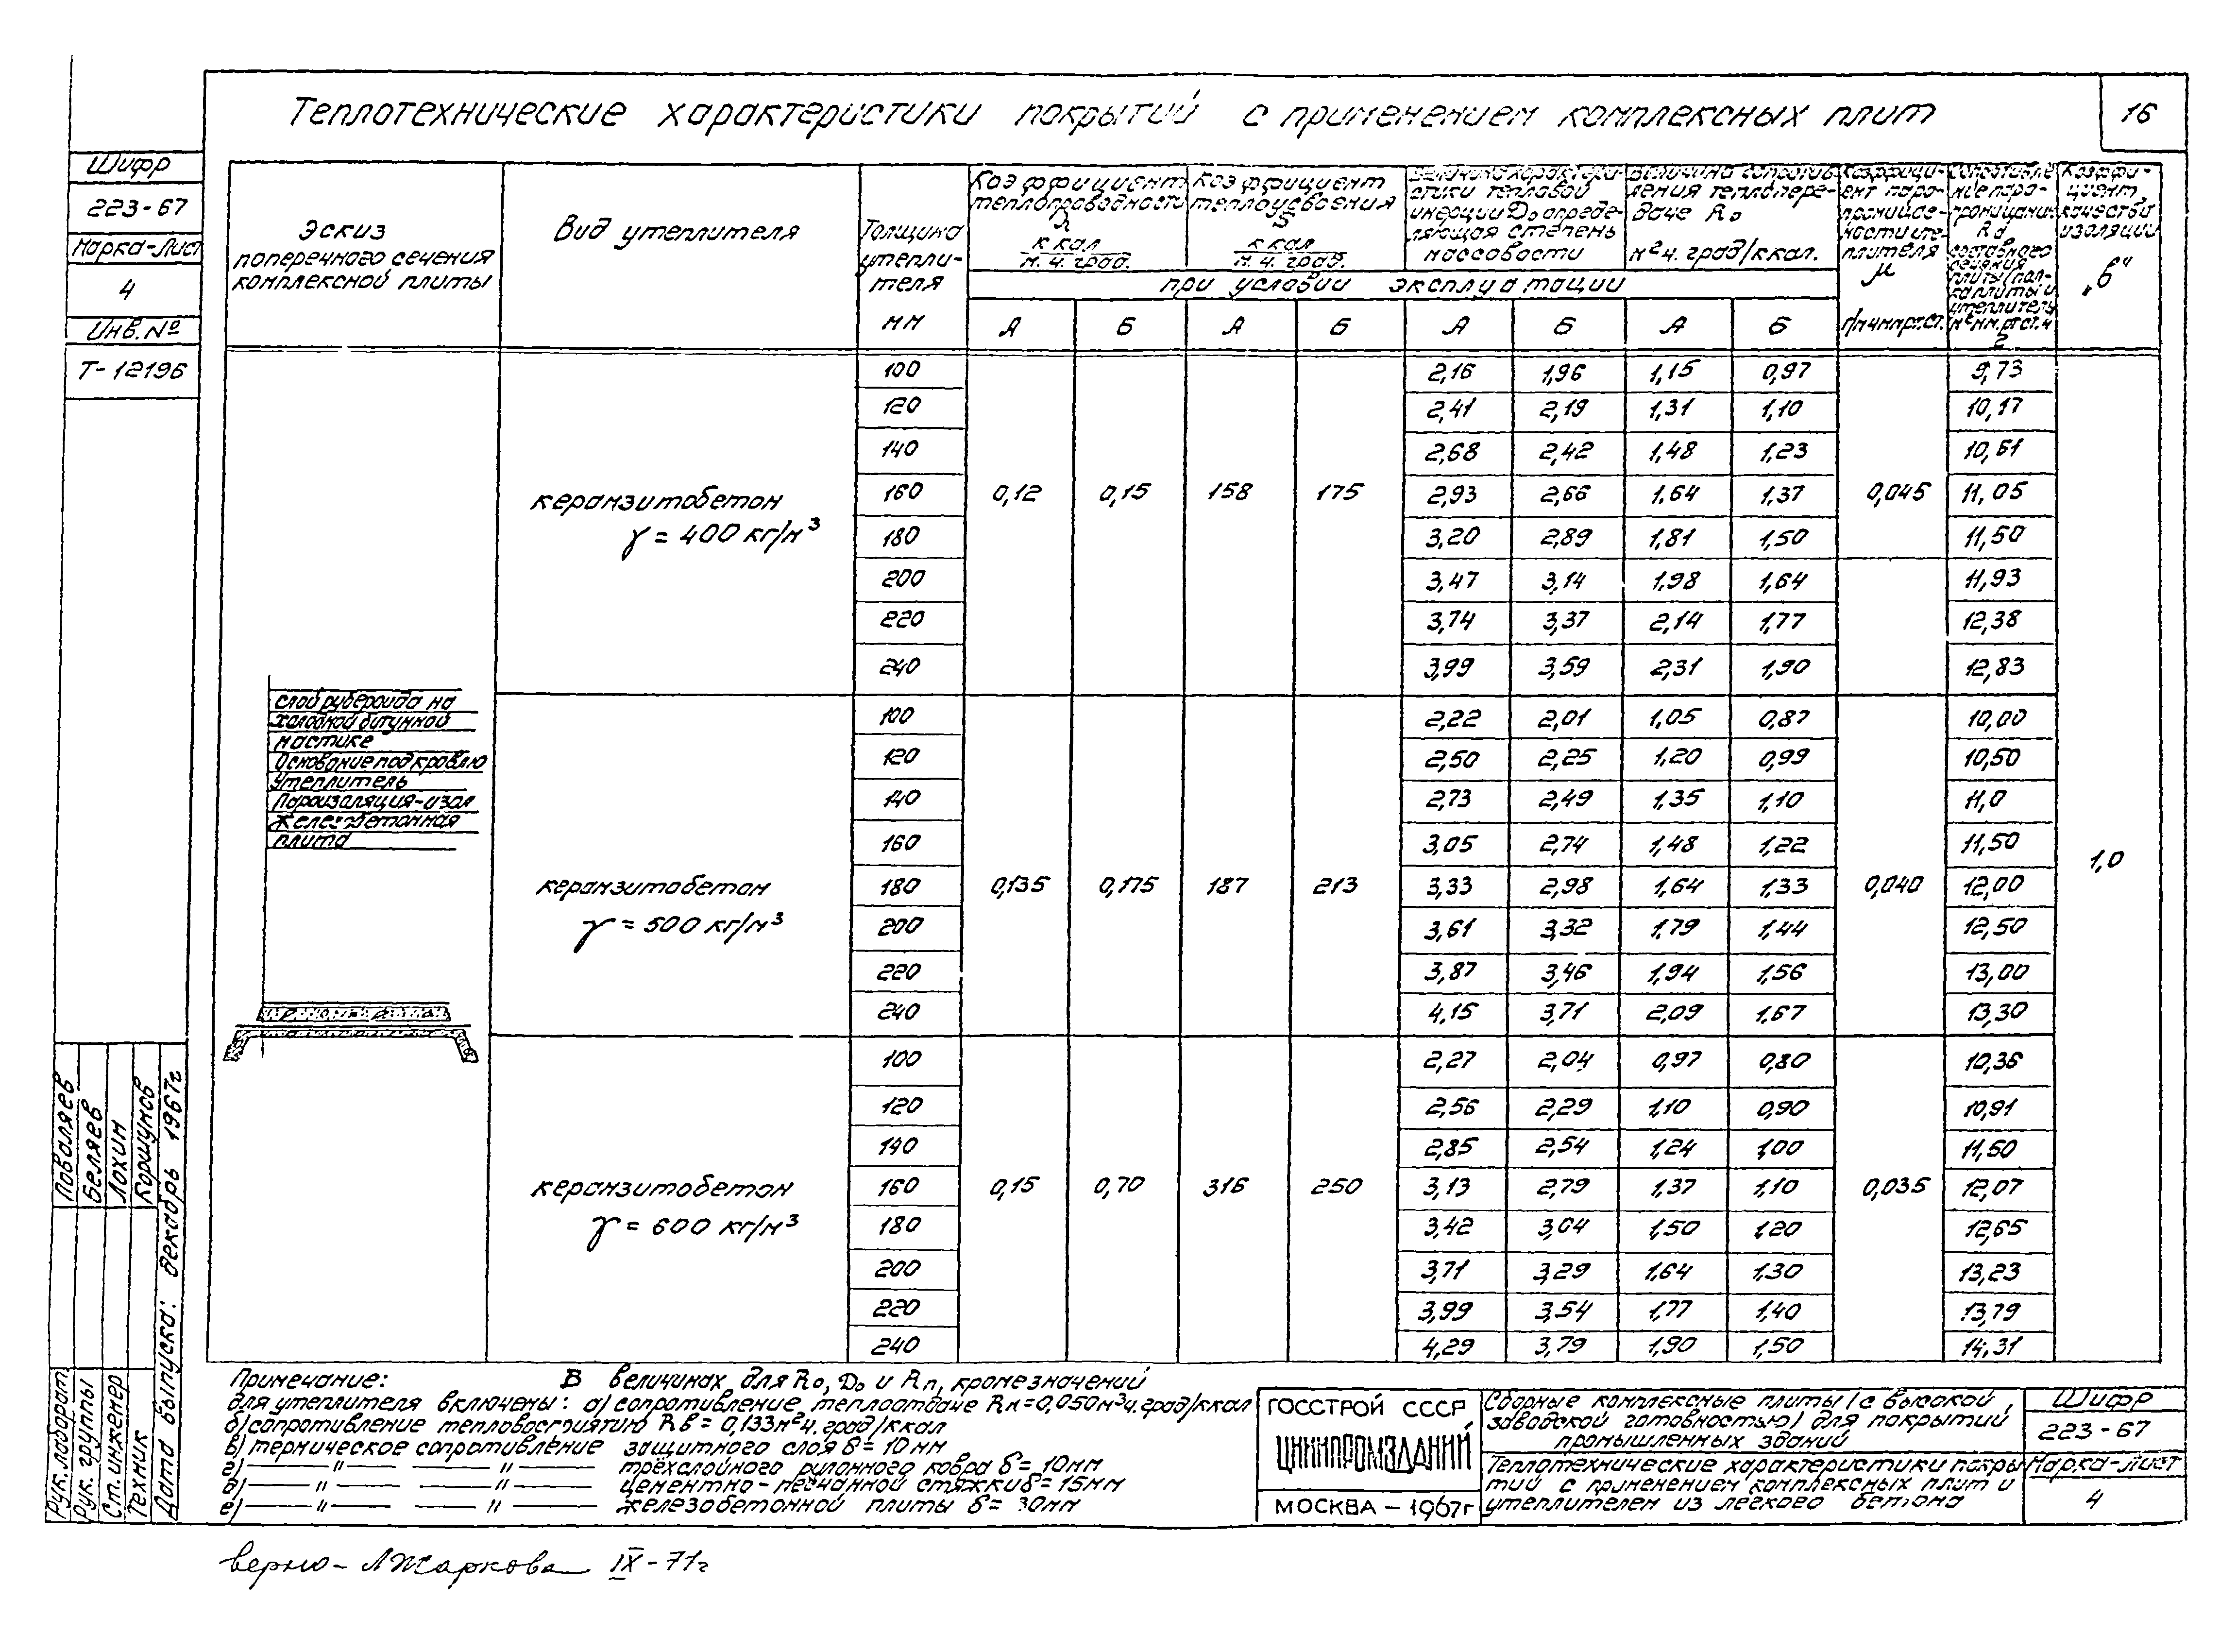 Теплотехнические характеристики покрытий с применением комплексных плит
16
Шифр
223-67
Марка-Лист
4
Инв.№
Т-12196
Эскиз
поперечного сечения
комплексной плиты
Вид утеплителя
Толщина
утепли-
теля
мм
Коэффициент
теплопроводности
λ
ккал
м. ч. град.
Коэффициент
теплоусвоения
S
ккал
м. ч. град.
Величина характери-
стики тепловой
инерции До опреде-
ляющая степень
массовости
Величина сопротив-
ления теплопере-
даче Rо
м²ч. град/ккал.
Коэффици-
ент паро-
проницае-
ности уте-
плителя
μ
г/мчммрт.ст.
Rd
составного
сечения
плиты (пол-
ка плиты и
утеплитель)
м²мм.рт.ст.ч
г
Коэффи-
циент
качества
изоляции
„б"
при условии эксплуатации
А Б А Б А Б А Б
100 2,16 1,96 1,15 0,97 9,73
120 2,41 2,19 1,31 1,10 10,17
140 2,68 2,42 1,48 1,23 10,61
керамзитобетон 160 0,12 0,15 158 175 2,93 2,66 1,64 1,37 0,045 11,05
γ = 400 кг/м³ 180 3,20 2,89 1,81 1,50 11,50
200 3,47 3,14 1,98 1,64 11,93
220 3,74 3,37 2,14 1,77 12,38
240 3,99 3,59 2,31 1,90 12,83
слой рубероида на
холодной битумной
мастике
Основание под кровлю
Утеплитель
Пароизоляция-изол
Железобетонная
плита
100 2,22 2,01 1,05 0,87 10,00
120 2,50 2,25 1,20 0,99 10,50
140 2,73 2,49 1,35 1,10 11,0
160 3,05 2,74 1,48 1,22 11,50
1,0
керамзитобетон 180 0,135 0,175 187 213 3,33 2,98 1,64 1,33 0,040 12,00
γ = 500 кг/м³ 200 3,61 3,32 1,79 1,44 12,50
220 3,87 3,46 1,94 1,56 13,00
240 4,15 3,71 2,09 1,67 13,30
100 2,27 2,04 0,97 0,80 10,36
120 2,56 2,29 1,10 0,90 10,91
140 2,85 2,54 1,24 1,00 11,50
керамзитобетон 160 0,15 0,70 316 250 3,13 2,79 1,37 1,10 0,035 12,07
γ = 600 кг/м³ 180 3,42 3,04 1,50 1,20 12,65
200 3,71 3,29 1,64 1,30 13,23
220 3,99 3,54 1,77 1,40 13,79
240 4,29 3,79 1,90 1,50 14,31
Примечание: В величинах для Rо, До и Rп, кроме значений
для утеплителя включены: а) сопротивление теплоотдаче Rн=0,050м²ч.град/ккал
б) сопротивление тепловосприятию Rв= 0,133м²ч.град/ккал
в) термическое сопротивление защитного слоя δ= 10мм
г) — " — — " — трёхслойного рулонного ковра δ= 10мм
д) — " — — " — цементно-песчанной стяжки δ= 15мм
е) — " — — " — железобетонной плиты δ= 30мм
ГОССТРОЙ СССР
ЦНИИПРОМЗДАНИЙ
МОСКВА – 1967г
Сборные комплексные плиты (с высокой
заводской готовностью) для покрытий
промышленных зданий
Теплотехнические характеристики покры
тий с применением комплексных плит и
утеплителем из легкого бетона
Шифр
223-67
Марка-Лист
4
Рук.лаборат. Поваляев
Рук. группы Беляев
Ст.инженер Лохин
Техник Коршунов
Дата выпуска: декабрь 1967г
верно – Л Жаркова IX-71г